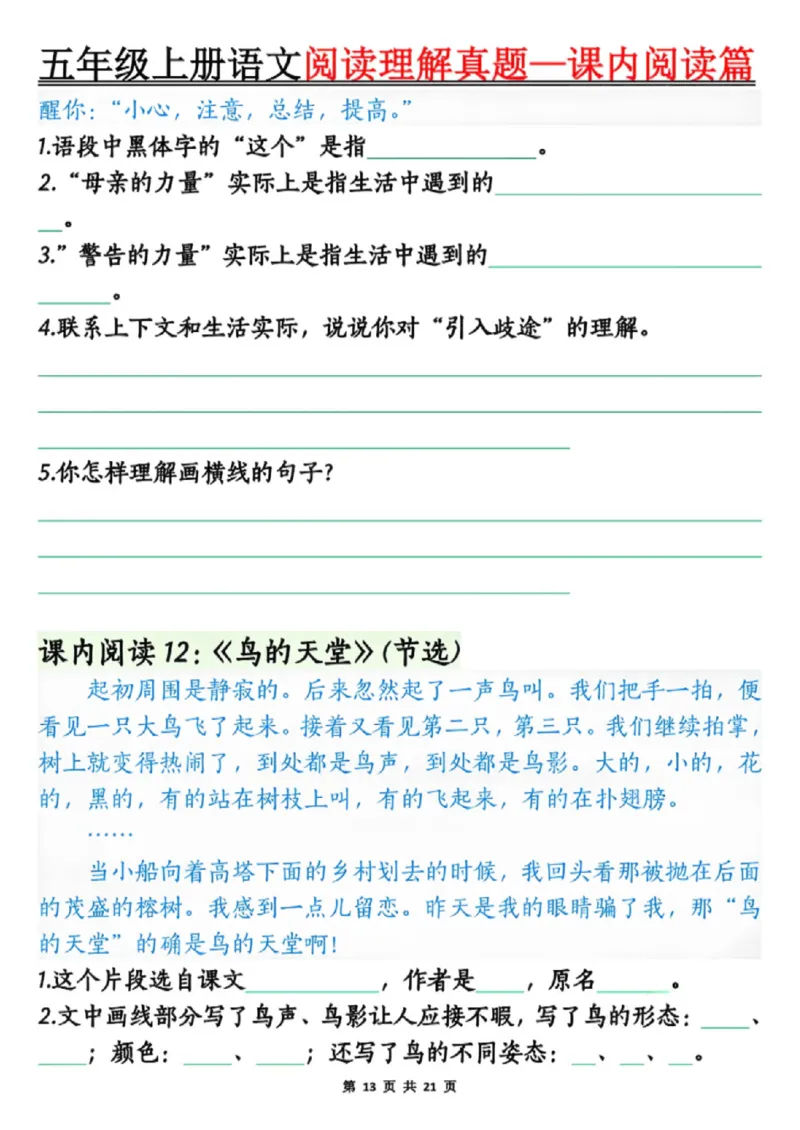 五年级上册语文阅读理解真题—课内阅读篇
醒你：“小心，注意，总结，提高。”
1.语段中黑体字的“这个”是指______________。
2.“母亲的力量”实际上是指生活中遇到的______________________
__。
3.”警告的力量”实际上是指生活中遇到的______________________
______。
4.联系上下文和生活实际，说说你对“引入歧途”的理解。
5.你怎样理解画横线的句子?
课内阅读 12：《鸟的天堂》(节选)
起初周围是静寂的。后来忽然起了一声鸟叫。我们把手一拍，便
看见一只大鸟飞了起来。接着又看见第二只，第三只。我们继续拍掌，
树上就变得热闹了，到处都是鸟声，到处都是鸟影。大的，小的，花
的，黑的，有的站在树枝上叫，有的飞起来，有的在扑翅膀。
……
当小船向着高塔下面的乡村划去的时候，我回头看那被抛在后面
的茂盛的榕树。我感到一点儿留恋。昨天是我的眼睛骗了我，那“鸟
的天堂”的确是鸟的天堂啊!
1.这个片段选自课文___________，作者是____，原名______。
2.文中画线部分写了鸟声、鸟影让人应接不暇，写了鸟的形态：____、
____；颜色：____、____；还写了鸟的不同姿态：__、__、__。
第 13 页 共 21 页